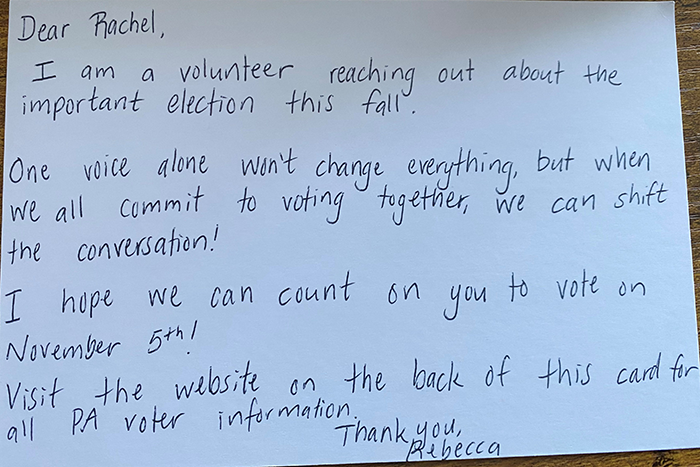 Dear Rachel,
I am a volunteer reaching out about the
important election this fall.
One voice alone won't change everything, but when
we all commit to voting together, we can shift
the conversation!
I hope we can count on you to vote on
November 5th!
Visit the website on the back of this card for
all PA voter information.
Thank you,
Rebecca